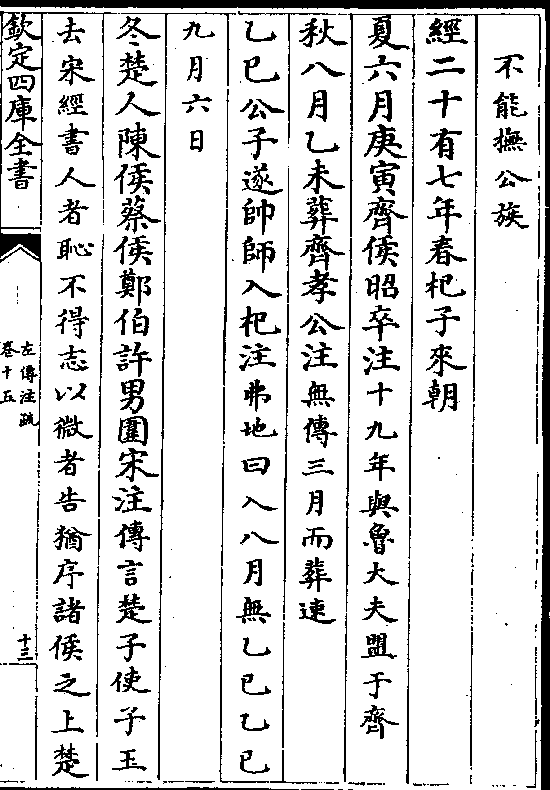 不能撫公族
經二十有七年春杞子來朝
夏六月庚寅齊侯昭卒注十九年與魯大夫盟于齊
秋八月乙未葬齊孝公注無傳三月而葬速
乙巳公子遂帥師入杞注弗地曰入八月無乙巳乙巳
九月六日
冬楚人陳侯蔡侯鄭伯許男圍宋注傳言楚子使子玉
去宋經書人者恥不得志以微者告猶序諸侯之上楚
欽定四庫全書
左傳注疏
卷十五
十三